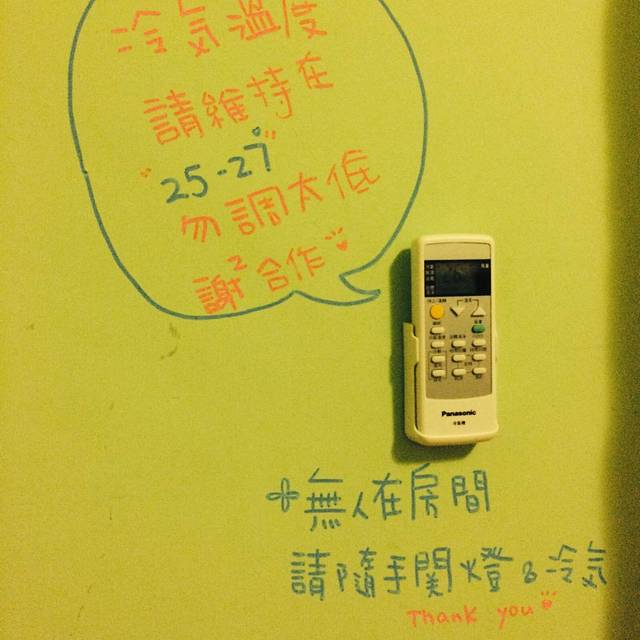 冷氣溫度
請維持在
"25-27°"
勿調太低
謝² 合作
Panasonic
冷氣機
無人在房間
請隨手関燈&冷氣
Thank you